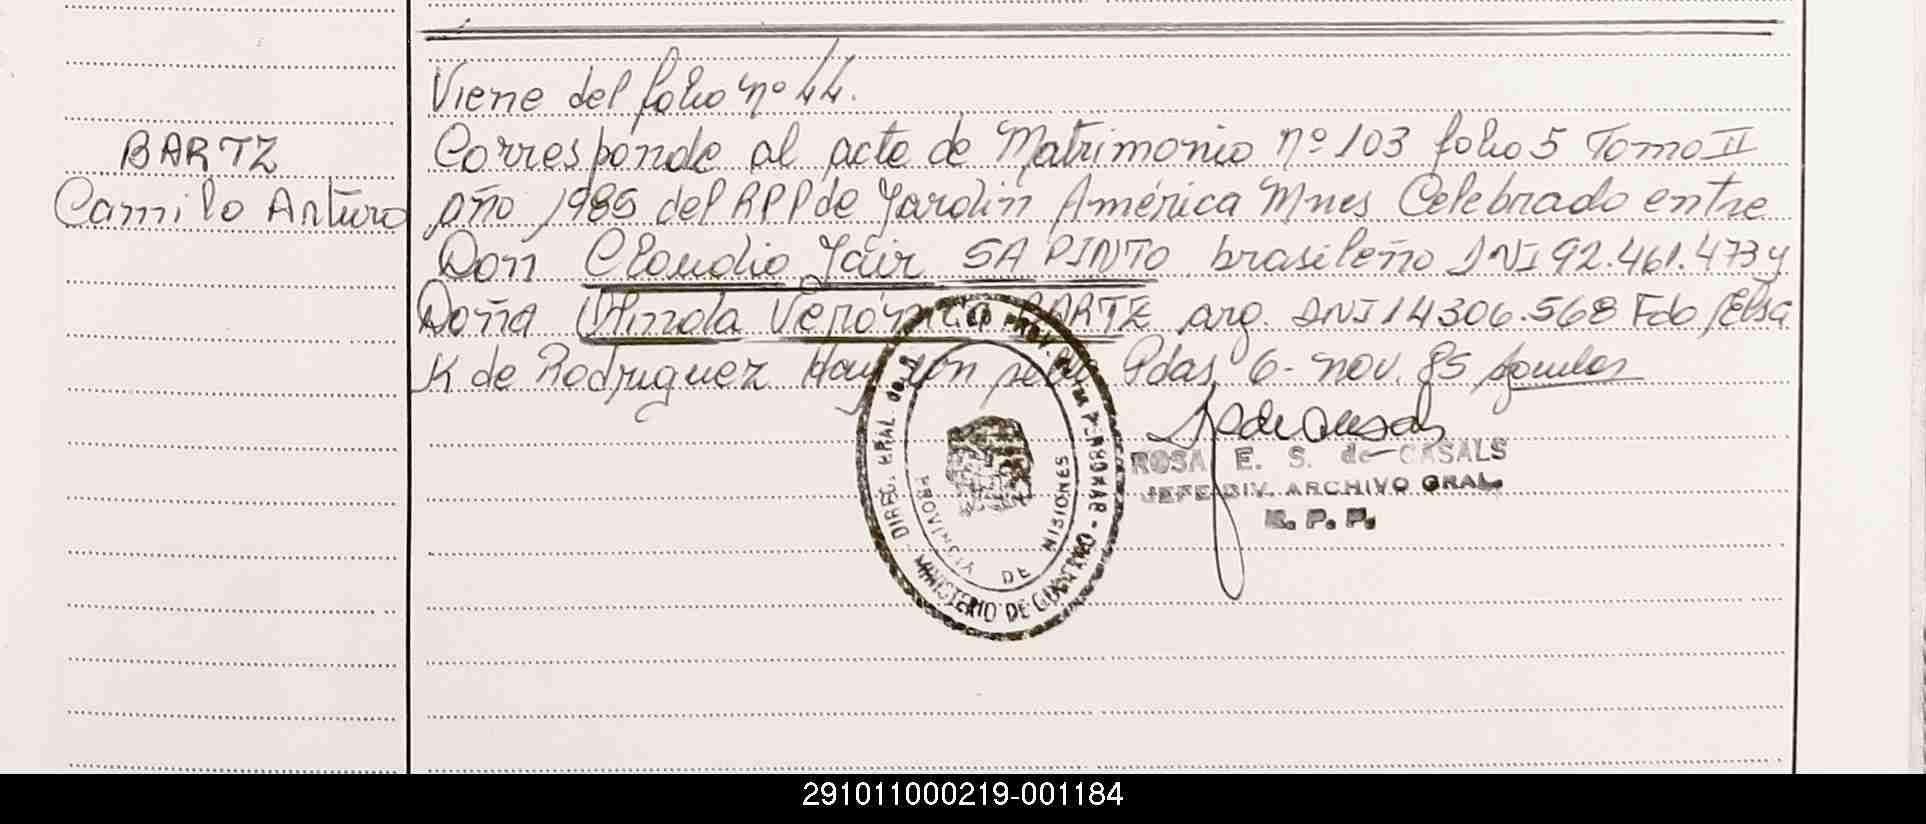 Viene del folio nº 44.
BARTZ
Camilo Arturo
Corresponde al acta de Matrimonio nº 103 folio 5 Tomo II
año 1985 del RPP de Jardin América Mnes Celebrado entre
Don Claudio Jair SA PINTO brasileño DNI 92.461.473 y
Doña Verónica BARTZ arg. DNI 14306.568 Fdo Elsa
K de Rodriguez Hay un sello Pdas 6- nov. 85
ROSA E. S. de CASALS
JEFE DIV. ARCHIVO GRAL.
R. P. P.
PROVINCIA DE MISIONES
MINISTERIO DE GOBIERNO
291011000219-001184